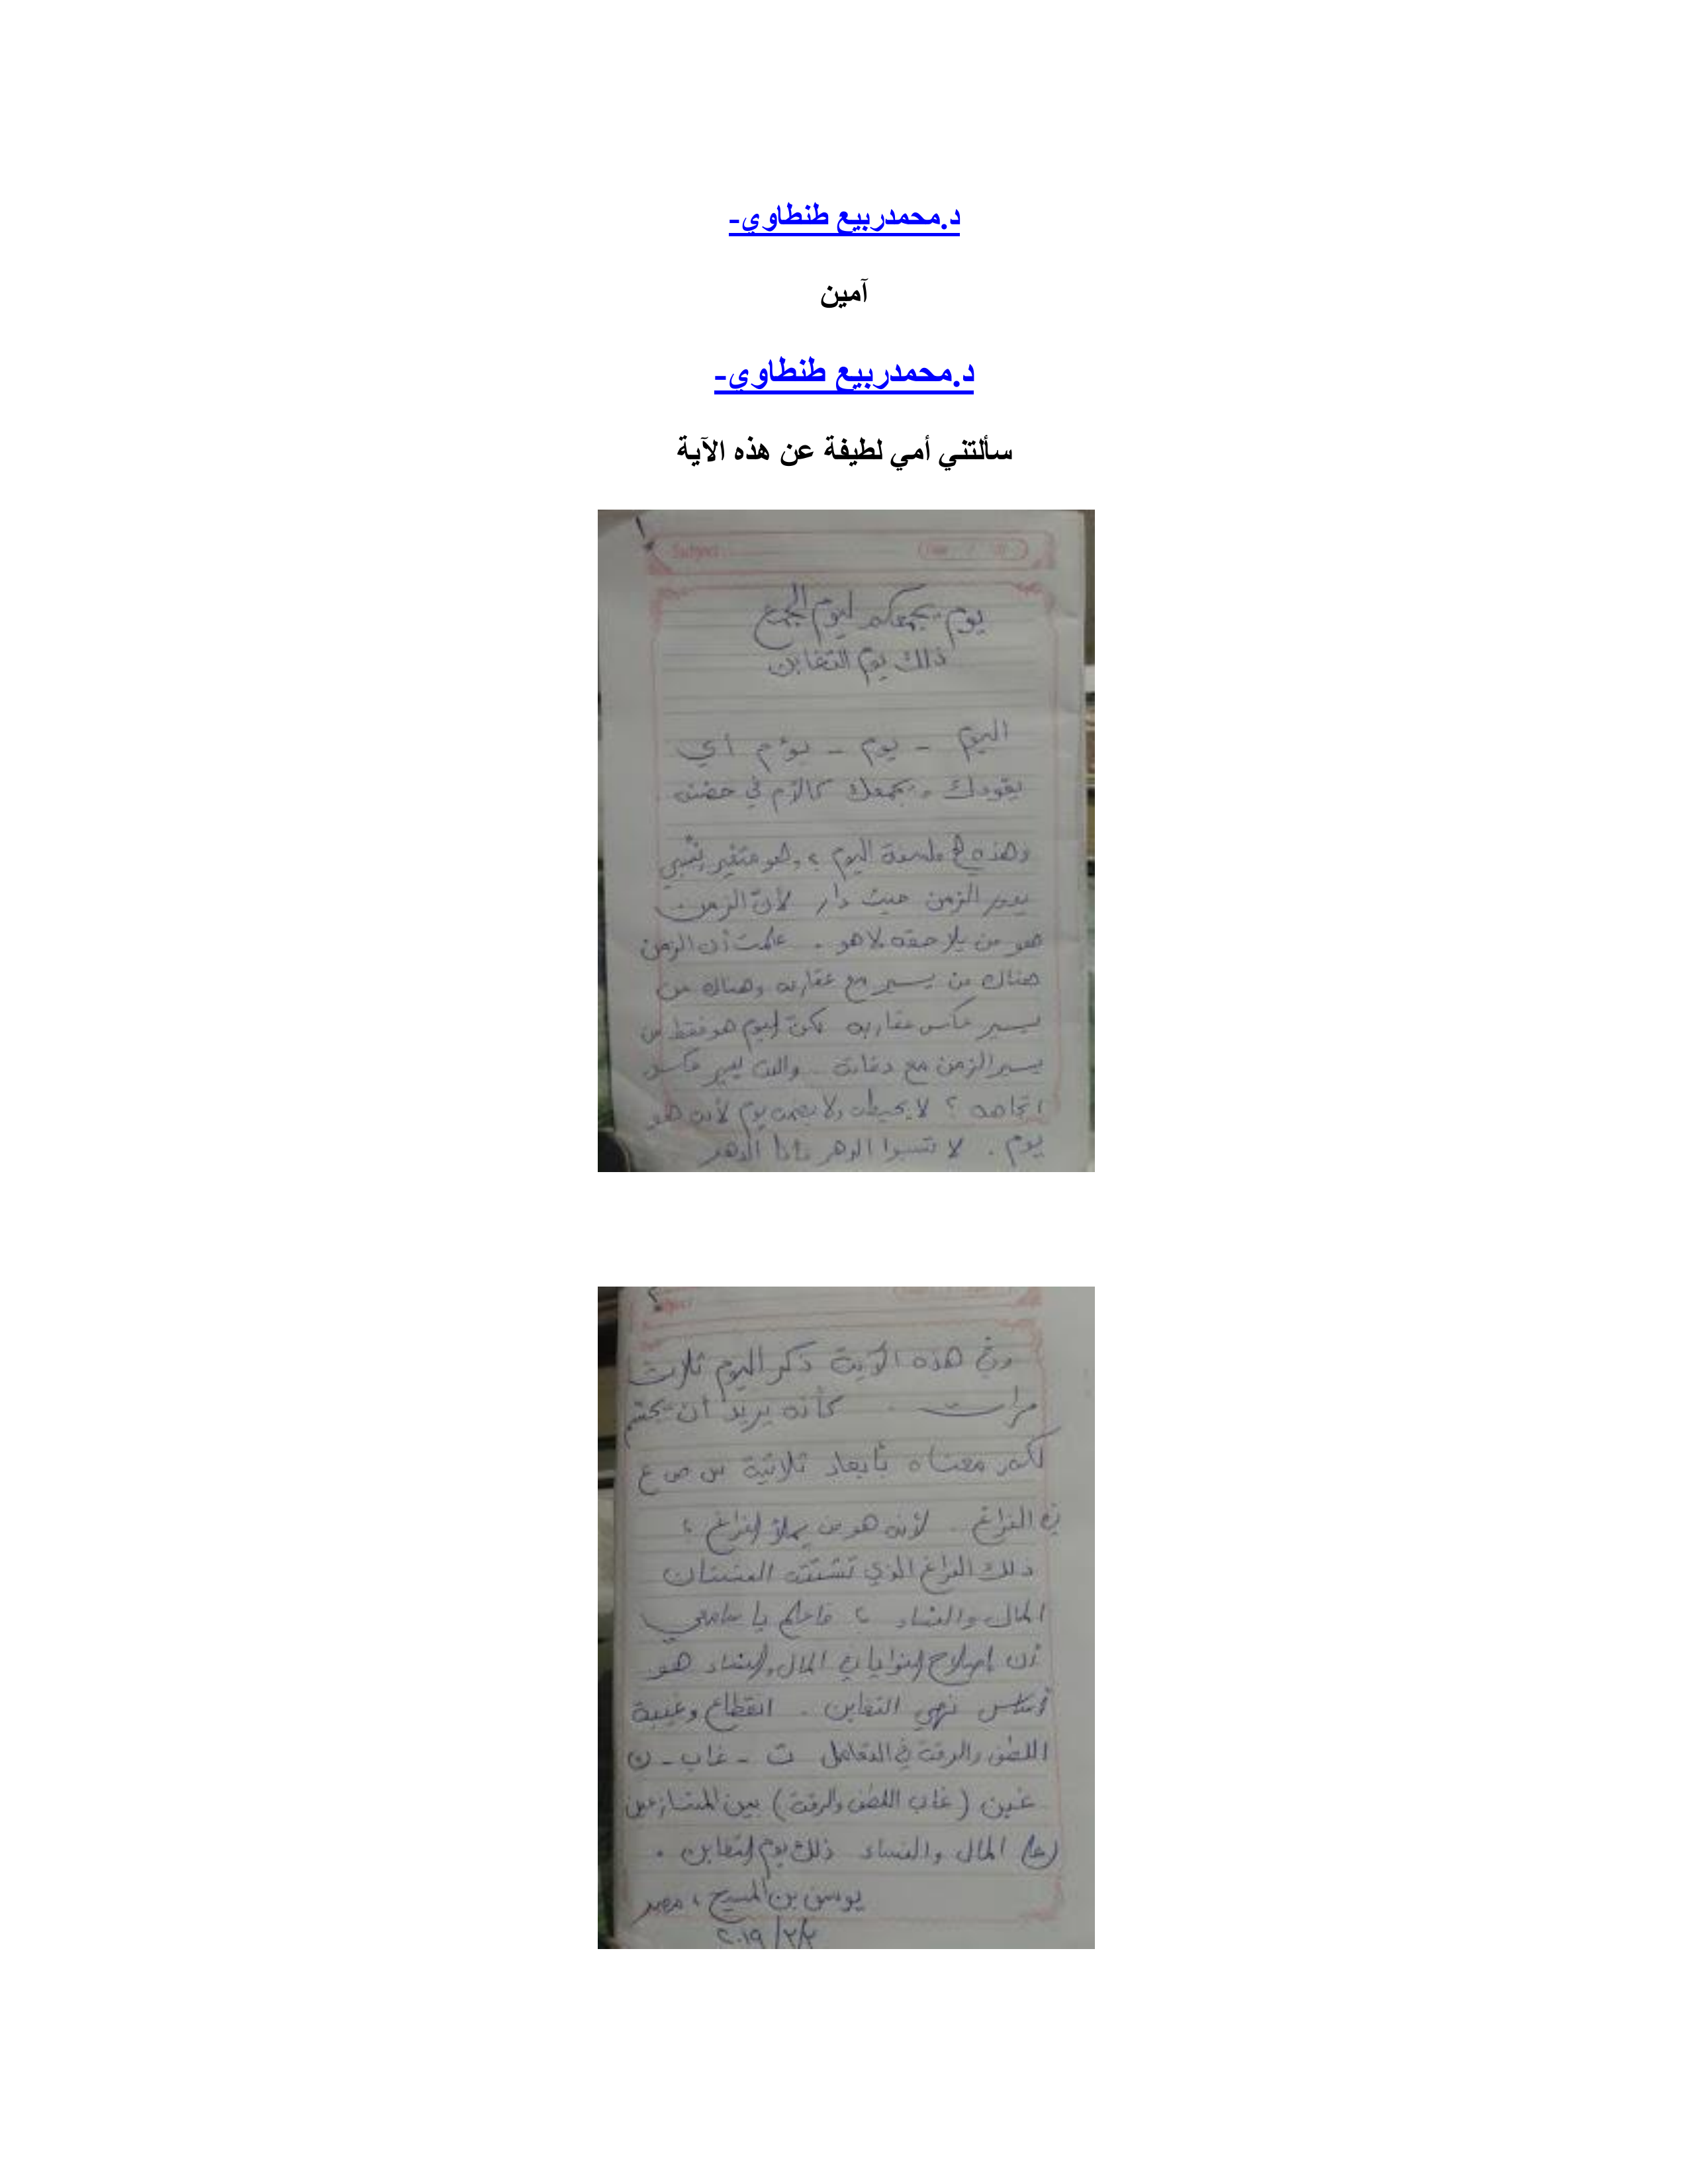 د.محمدربيع طنطاوي-
آمين
د.محمدربيع طنطاوي-
سألتني أمي لطيفة عن هذه الآية
Subject:
يوم يجمعكم ليوم الجمع
ذلك يوم التغابن
اليوم - يوم - يؤم أي
يقودك ويجمعك كالأم في حضنه.
وهذه هي فلسفة اليوم، وهو متغير نسبي
يدور الزمن حيث دار لأن الزمن
هو من يلاحقه لا هو. علمت أن الزمن
هناك من يسير مع عقاربه وهناك من
يسير عكس عقاربه لكن اليوم هو فقط من
يسير الزمن مع دقاته والذي يسير عكس
اتجاهه؟ لا يحيطه ولا يضمه يوم لأنه هو
يوم. لا تسبوا الدهر فأنا الدهر
وفي هذه الآية ذكر اليوم ثلاث
مرات كأنه يريد أن يجسم
لكم معناه بأبعاد ثلاثية س ص ع
في الفراغ. لأنه هو من يملأ الفراغ،
ذلك الفراغ الذي تشتته الفتنتان
المال والنساء، فاعلم يا سامعي
أن إصلاح النوايا في المال والنساء هو
أساس نهي التغابن. انقطاع وغيبة
اللطف والرقة في التعامل ت - غاب - ن
غبن (غاب اللطف والرقة) بين المتنازعين
على المال والنساء ذلك يوم التغابن.
يوسف بن المسيح، مصر
٢/٢/٢٠١٩